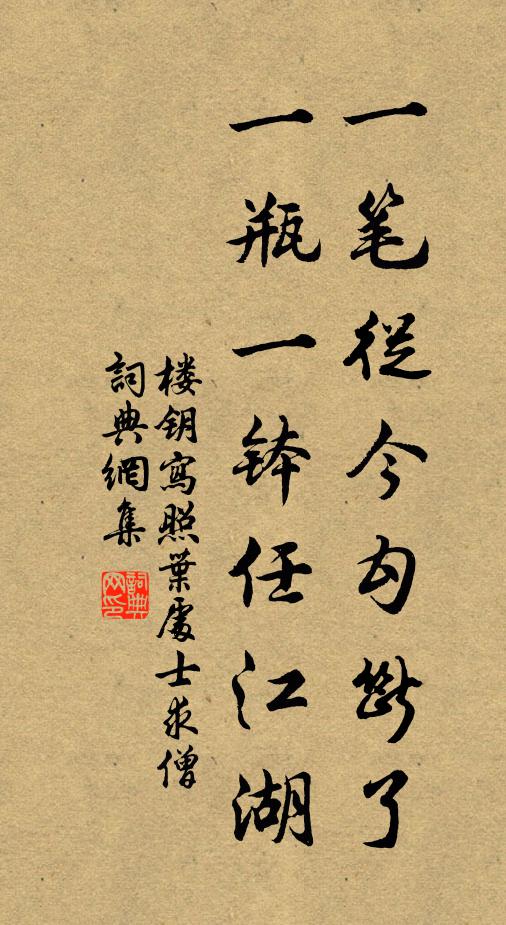 一笔從今勾斷了
一瓶一钵任江湖
楼钥寫照葉處士求僧
詞典網集
詞典网印